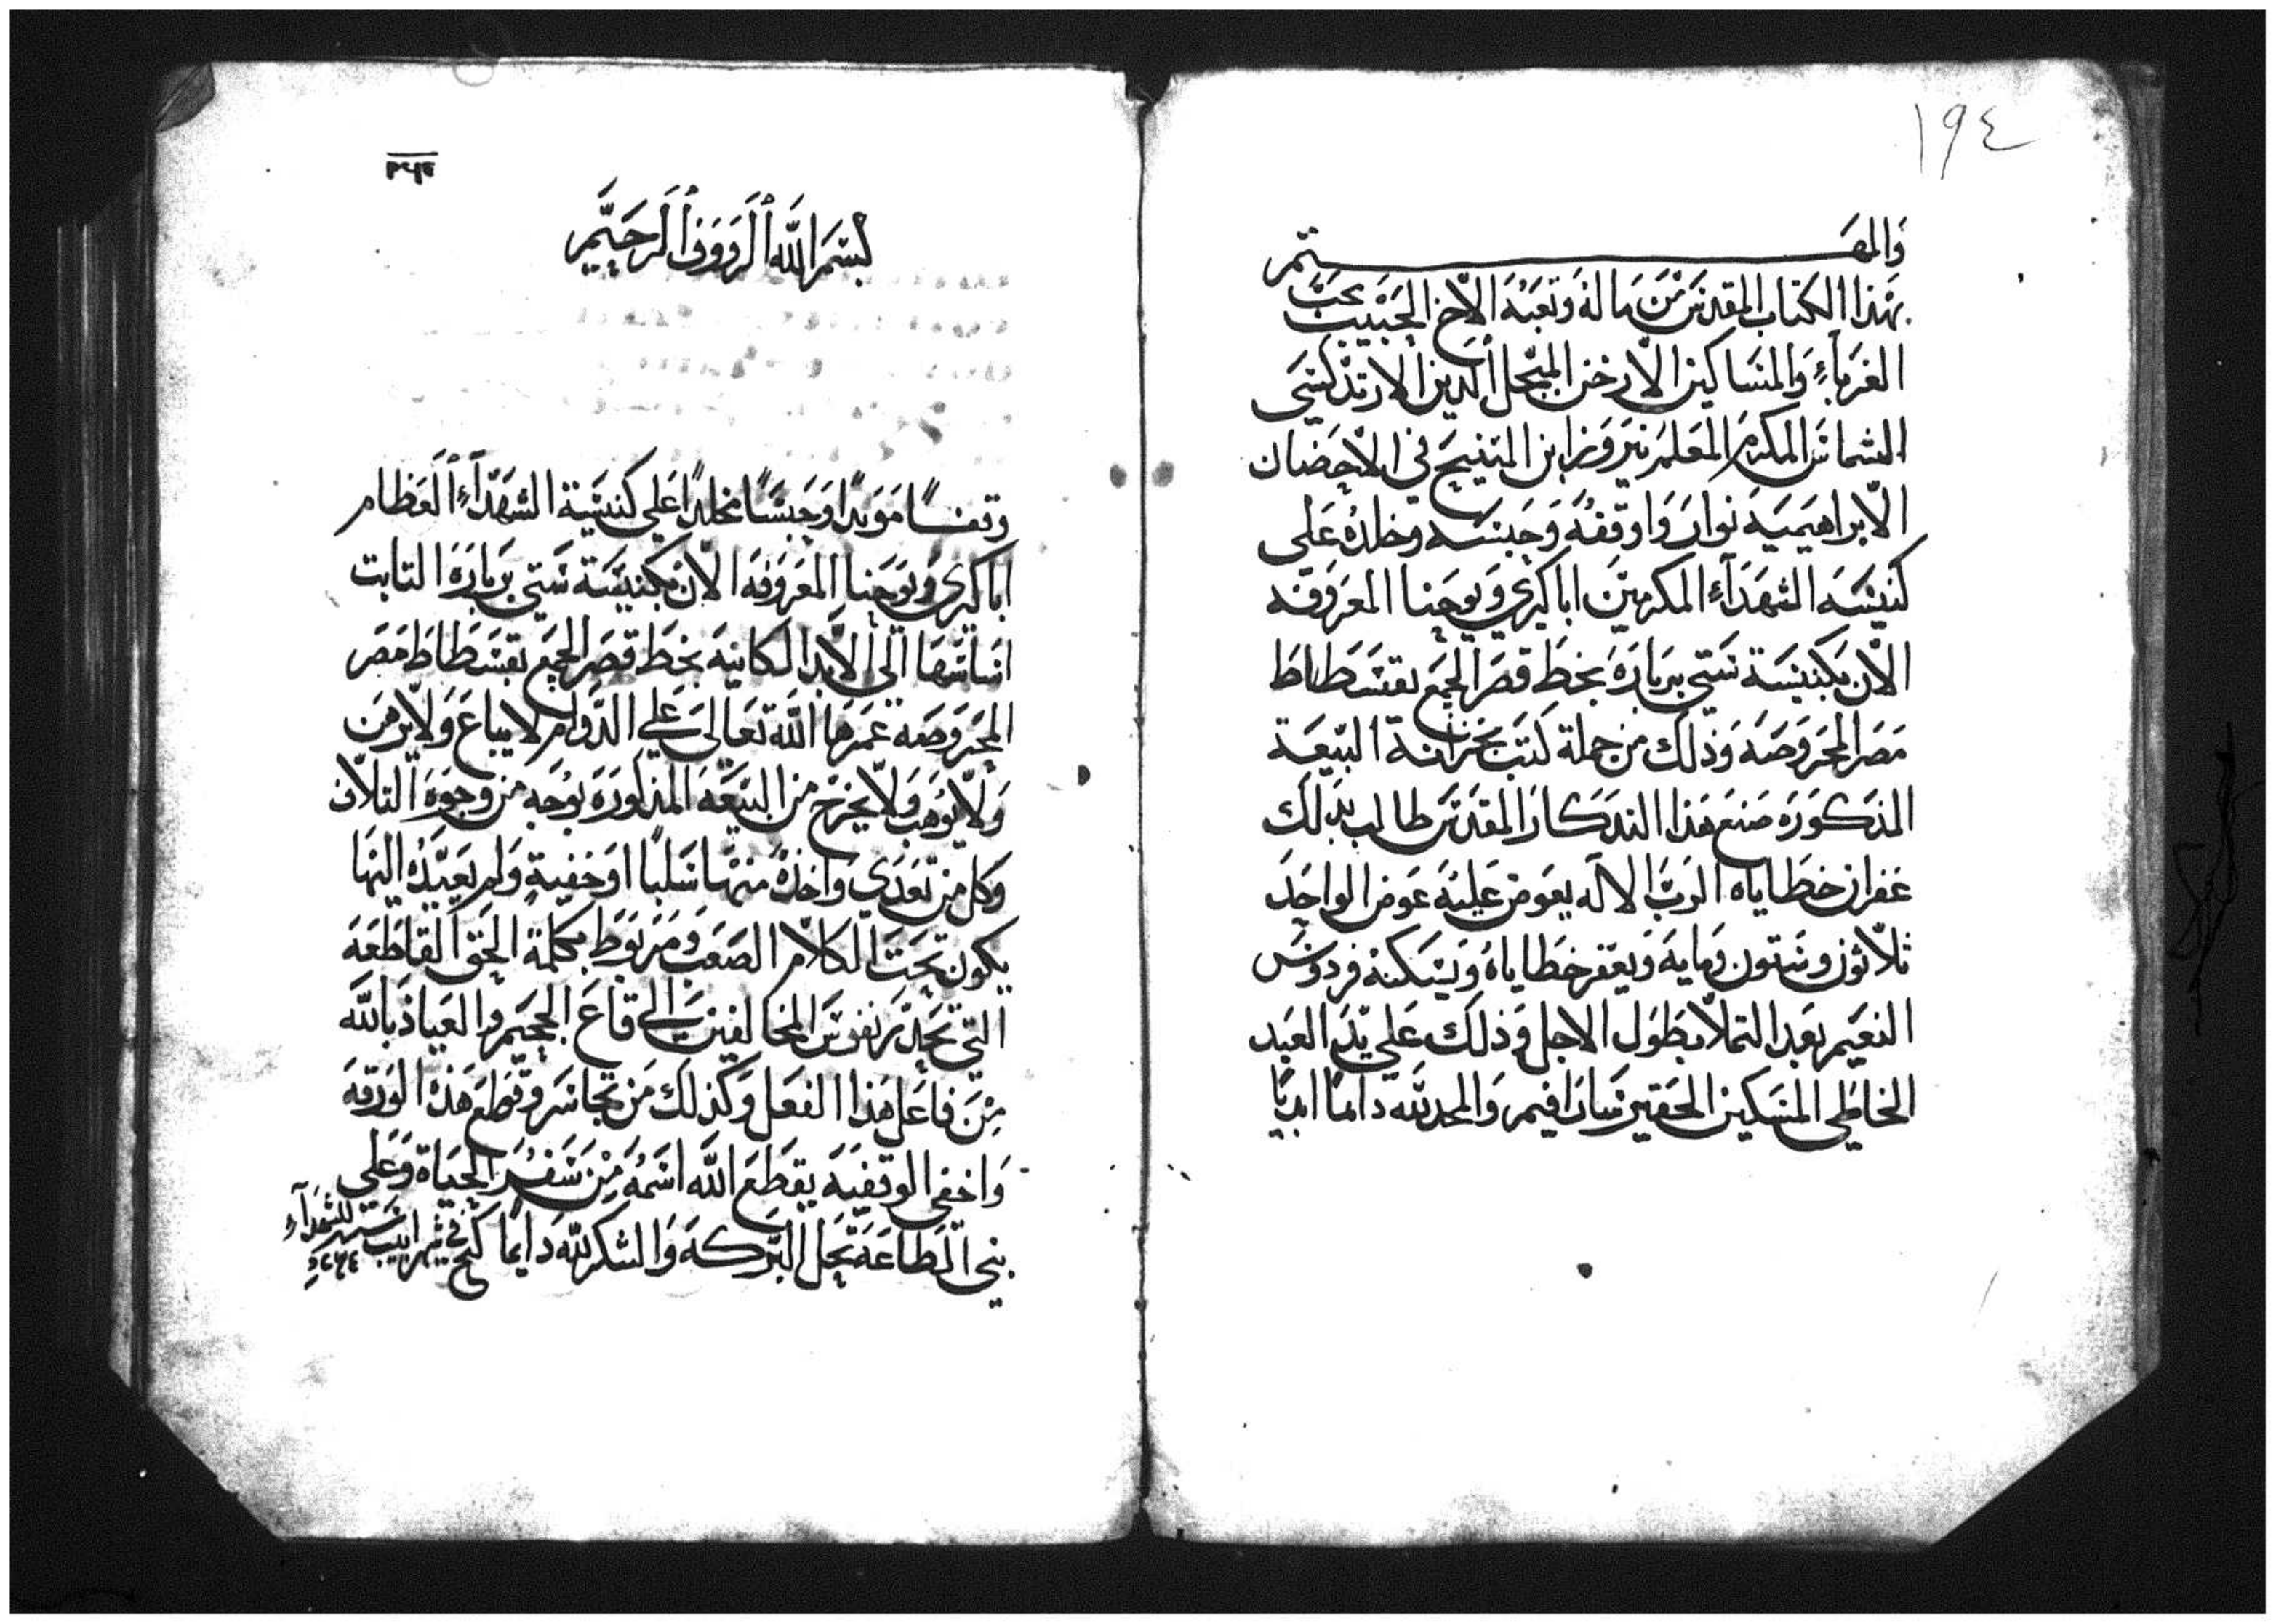 ١٩٤
والمهتم
بهذا الكتاب المقدس من ماله وتعبه الاخ الحبيب محب
الغرباء والمساكين الارخن المبجل الدين الارتدكسى
الشماس المكرم المعلم نيروز ابن المتنيح في الاحضان
الابراهيمية نوار واوقفه وحبسه وخلده على
كنيسه الشهداء المكرمين اباكيري ويوحنا المعروفه
الان بكنيسة ستي بربارة بخط قصر الجمع بفسطاط
مصر المحروصه وذلك من جملة كتب بخزانة البيعة
المذكوره صنع هذا التدكار المقدس طالب بدلك
غفران خطاياه الرب الاله يعوض عليه عوض الواحد
ثلاثون وستون ومايه ويغفر خطاياه ويسكنه فردوس
النعيم بعد التملا بطول الاجل وذلك على يد العبد
الخاطي المسكين الحقير سارافيم والمجد لله داما ابديا
بسم الله الرووف الرحيم
وقفا موبدا وحبسا مخلدا على كنيسة الشهداء العظام
اباكيري ويوحنا المعروفه الان بكنيسة ستي برباره التابت
اساسها الي الابد الكاينه بخط قصر الجمع بفسطاط مصر
المحروصه عمرها الله تعالى علي الدوام لا يباع ولا يرهن
ولا يوهب ولا يخرج من البيعه المذكوره بوجه من وجوه التلاف
وكل من تعدي واخده منها سلبا او خفية ولم يعيده اليها
يكون تحت الكلام الصعب ومربوط بكلمة الحق القاطعه
التي تحدر نفوس المخالفين الي قاع الجحيم والعياذ بالله
من فاعل هذا الفعل وكذلك من تجاسر وقطع هذه الورقه
واخفي الوقفيه يقطع الله اسمه من سفر الحياة وعلى
بني الطاعه تحل البركه والشكر لله دايما في شهر ابيب للشهداء